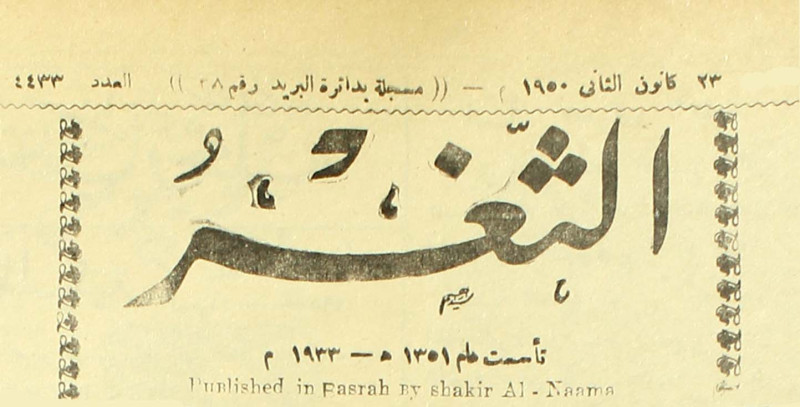 ٢٣ كانون الثاني ١٩٥٠ م — (( مسجلة بدائرة البريد رقم ٢٨ )) العدد ٤٤٣٣
الثَّغْرُ
تأسست عام ١٣٥١ ه — ١٩٣٣ م
Published in Basrah By shakir Al - Naama